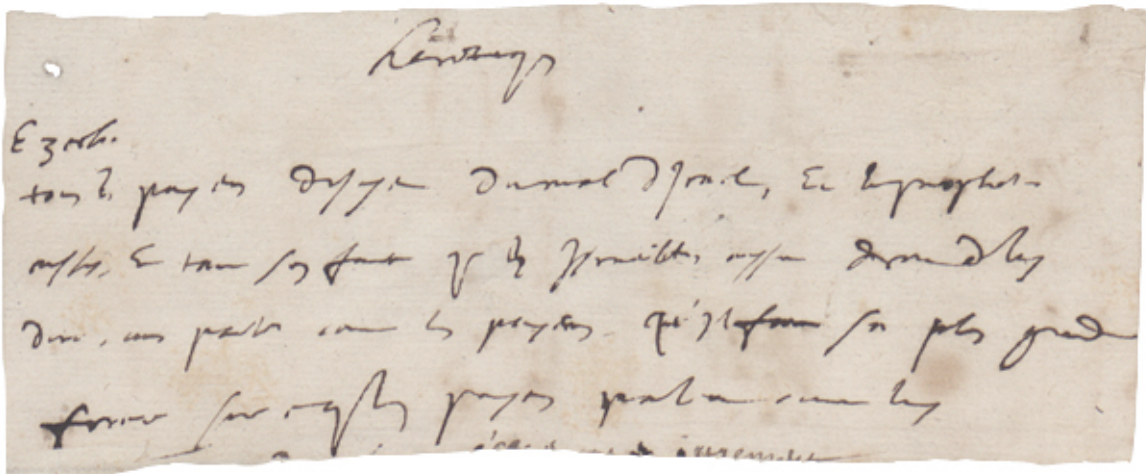 heretiques
Ezech.
tous les payens disoyent du mal d'Israel, Et le prophete
aussy, Et tant sen faut que les Israelites eussent droit de luy
dire, vous parlez comme les payens. qu'il fait sa plus grande
force sur ce que les payens parlent comme luy